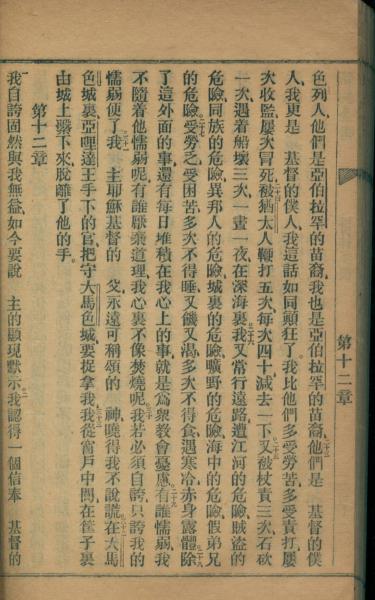 第十二章
色列人、他們是亞伯拉罕的苗裔、我也是亞伯拉罕的苗裔、他們是 基督的僕
人、我更是 基督的僕人、我這話如同顛狂了。我比他們多受勞苦、多受責打、屢
次收監、屢次冒死、被猶太人鞭打五次、每次四十減去一下、又被杖責三次、石砍
一次、遇着船壞三次、一晝一夜、在深海裏。我又常行遠路、遭江河的危險、賊盜的
危險、同族的危險、異邦人的危險、城裏的危險、曠野的危險、海中的危險、假弟兄
的危險、受勞乏、受困苦、多次不得睡、又饑又渴、多次不得食、遇寒冷、赤身露體。除
了這外面的事、還有每日堆積在我心上的事、就是爲衆教會憂慮。有誰懦弱、我
不隨着他懦弱呢、有誰厭棄道理、我心裏不像焚燒呢。我若必須自誇、只誇我的
懦弱便了。我 主耶穌基督的 父、永遠可稱頌的 神、曉得我不說謊。在大馬
色城裏、亞哩達王手下的官、把守大馬色城、要捉拿我、我從窗戶中間、在筐子裏、
由城上縋下來、脫離了他的手。
第十二章
我自誇固然與我無益、如今要說 主的顯現默示。我認得一個信奉 基督的